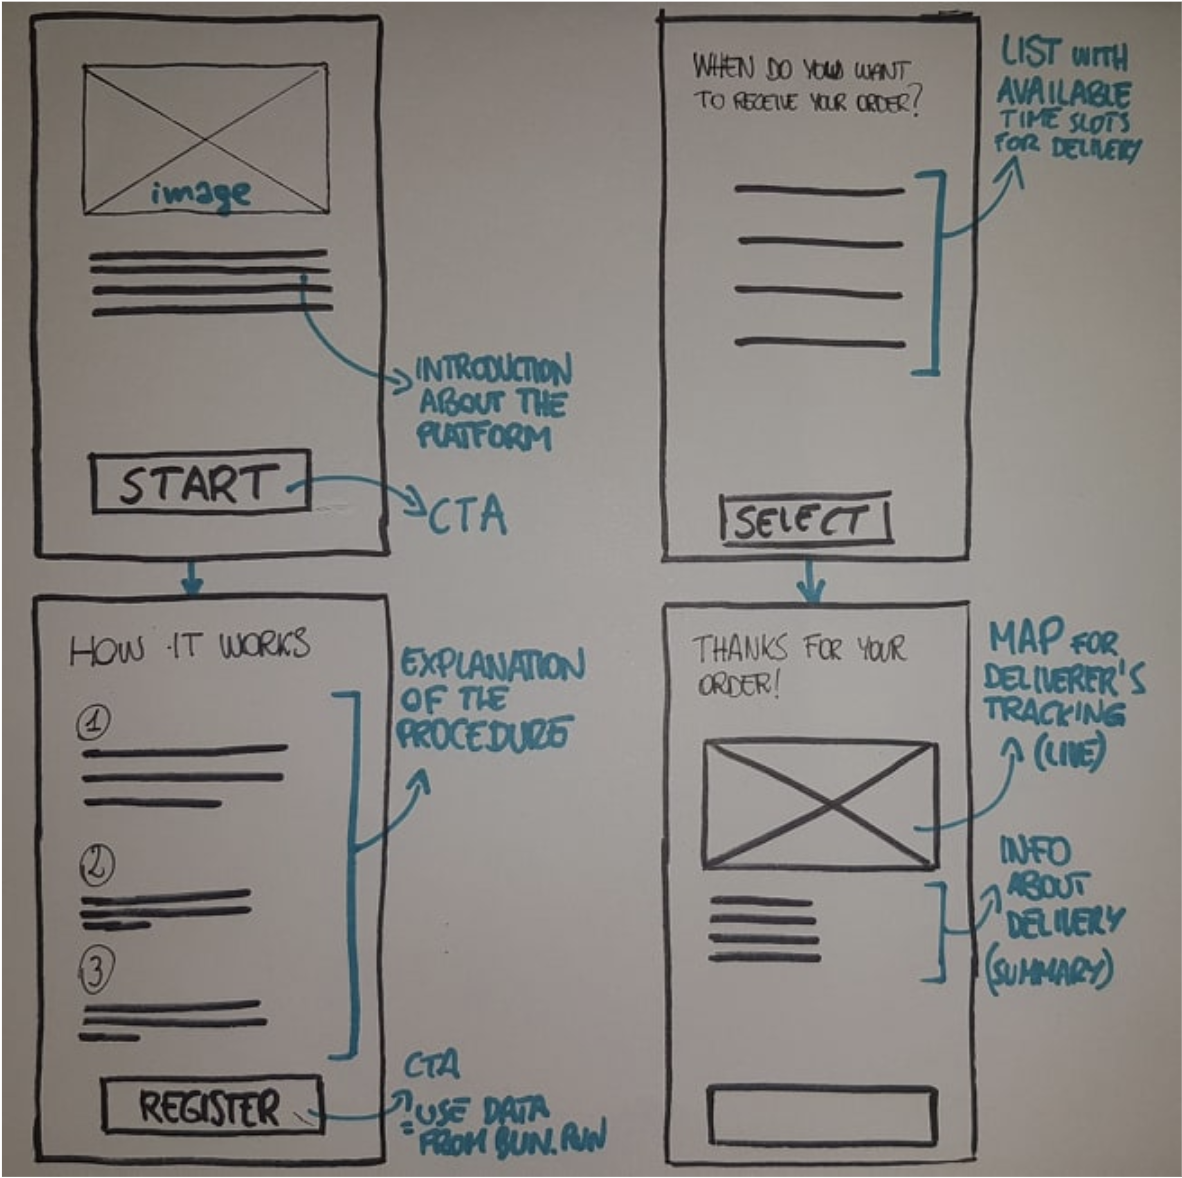 image
INTRODUCTION
ABOUT THE
PLATFORM
START
CTA
HOW IT WORKS
1
2
3
EXPLANATION
OF THE
PROCEDURE
REGISTER
CTA
USE DATA
FROM
WHEN DO YOU WANT
TO RECEIVE YOUR ORDER?
LIST WITH
AVAILABLE
TIME SLOTS
FOR DELIVERY
SELECT
THANKS FOR YOUR
ORDER!
MAP FOR
DELIVERER'S
TRACKING
(LIVE)
INFO
ABOUT
DELIVERY
(SUMMARY)